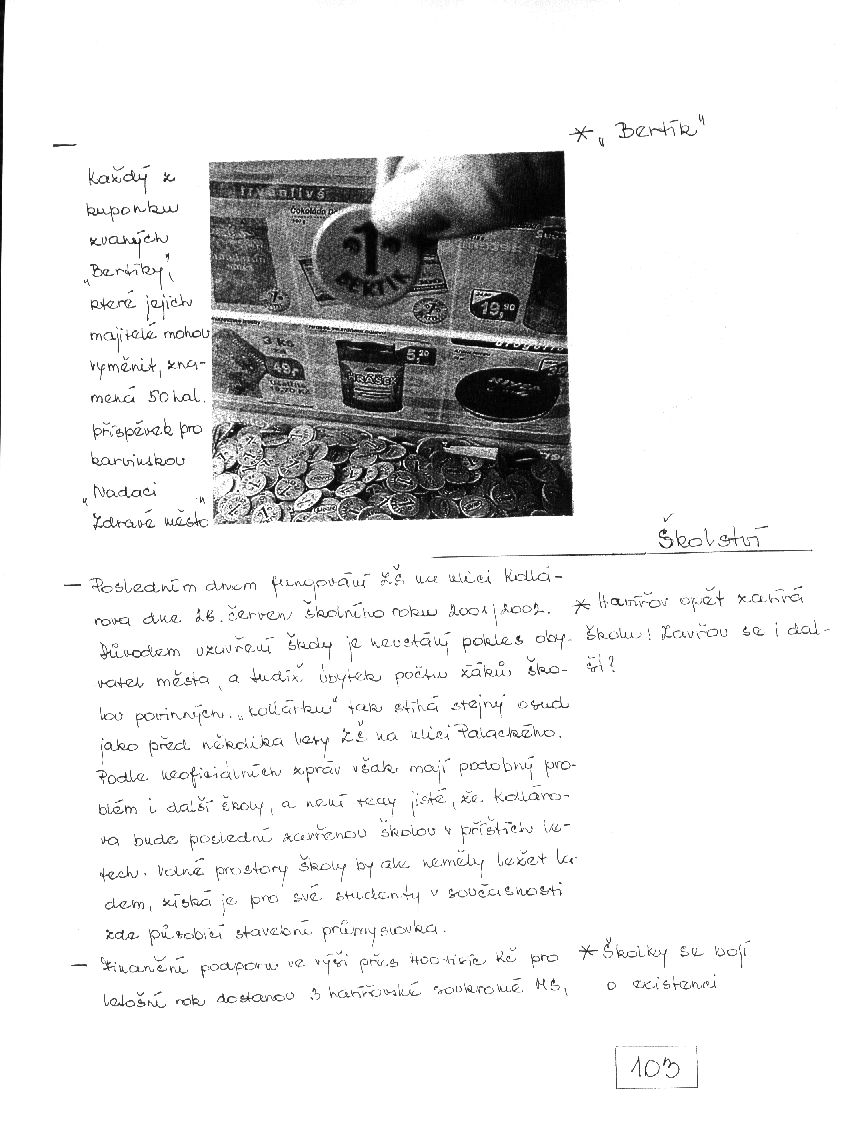 * „Bertík"
—
Každý z
kuponku
zvaných
„Bertíky",
které jejich
majitelé mohou
vyměnit, zna-
mená 50 hal.
příspěvek pro
karvinskou
„Nadaci
Zdravé město"
trvanlivé
Čokoláda
1
BERTÍK
19,90
3 kg
49,-
5,20
Školství
— Posledním dnem fungování ZŠ na ulici Kollá-
rova dne 26. červen školního roku 2001/2002.
Důvodem uzavření školy je neustálý pokles oby-
vatel města, a tudíž úbytek počtu žáků ško-
lou povinných. „Kollárku" tak stihá stejný osud
jako před několika lety ZŠ na ulici Palackého.
Podle neoficiálních zpráv však mají podobný pro-
blém i další školy, a není tedy jisté, že Kolláro-
va bude poslední zavřenou školou v příštích le-
tech. Volné prostory školy by ale neměly ležet la-
dem, získá je pro své studenty v současnosti
zde působící stavební průmyslovka.
* Havířov opět zavírá
školu! Zavřou se i dal-
ší?
— Finanční podporu ve výši přes 400 tisíc Kč pro
letošní rok dostanou 3 havířovské soukromé MŠ,
* Školky se bojí
o existenci
103